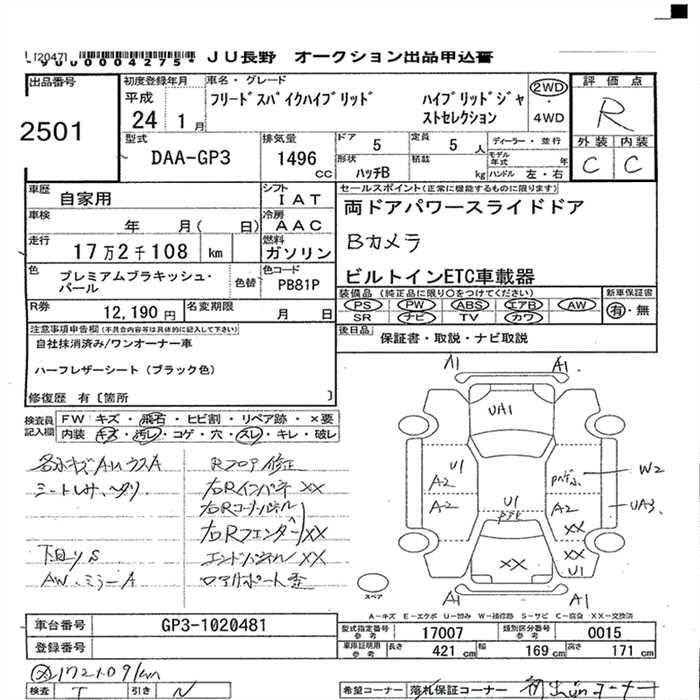 *9000004275* JU長野 オークション出品申込書
出品番号
2501
初度登録年月
平成
24 1月
車名・グレード
フリードスパイクハイブリッド ハイブリッドジャ
ストセレクション
2WD
・
4WD
評価点
R
外装 内装
C C
型式
DAA-GP3
排気量
1496
CC
ドア
5
定員
5 人
形状
ハッチB
積載
kg
ディーラー・並行
モデル
年式 年
ハンドル 左・右
車歴
自家用
シフト
IAT
車検
年 月( 日)
冷房
AAC
走行
17万2千108 km
燃料
ガソリン
色
プレミアムブラキッシュ・
パール
色替
色コード
PB81P
R券
12,190 円
名変期限
月 日
セールスポイント(正常に機能するものに限ります)
両ドアパワースライドドア
Bカメラ
ビルトインETC車載器
装備品(純正品に限り○をつけてください)
PS PW ABS エアB AW
SR ナビ TV カワ
新車保証書
有・無
後日品
保証書・取説・ナビ取説
注意事項申告欄(不具合内容等は具体的に記入して下さい)
自社抹消済み/ワンオーナー車
ハーフレザーシート(ブラック色)
修復歴 有〔箇所 〕
検査員
記入欄
FW:キズ・飛石・ヒビ割・リペア跡・×要
内装:キズ・汚レ・コゲ・穴・スレ・キレ・破レ
Rフロア修正
右Rインパネ XX
右Rコーナーパネル
右Rフェンダー XX
エンドパネル XX
下回りS
AW、ミラーA
A1 A1
UA1
U1
A2
A2
U1
W2
UA3
A2
XX
XX
U1
XX
A1 A1
スペア
A-キズ E-エクボ U-凹み W-補修跡 S-サビ C-腐食 XX-交換済
車台番号
GP3-1020481
登録番号
型式指定番号
参考
17007
類別区分番号
参考
0015
車庫証明用
参考
長さ 421 cm 幅 169 cm 高さ 171 cm
検査 引き
希望コーナー 落札保証コーナー